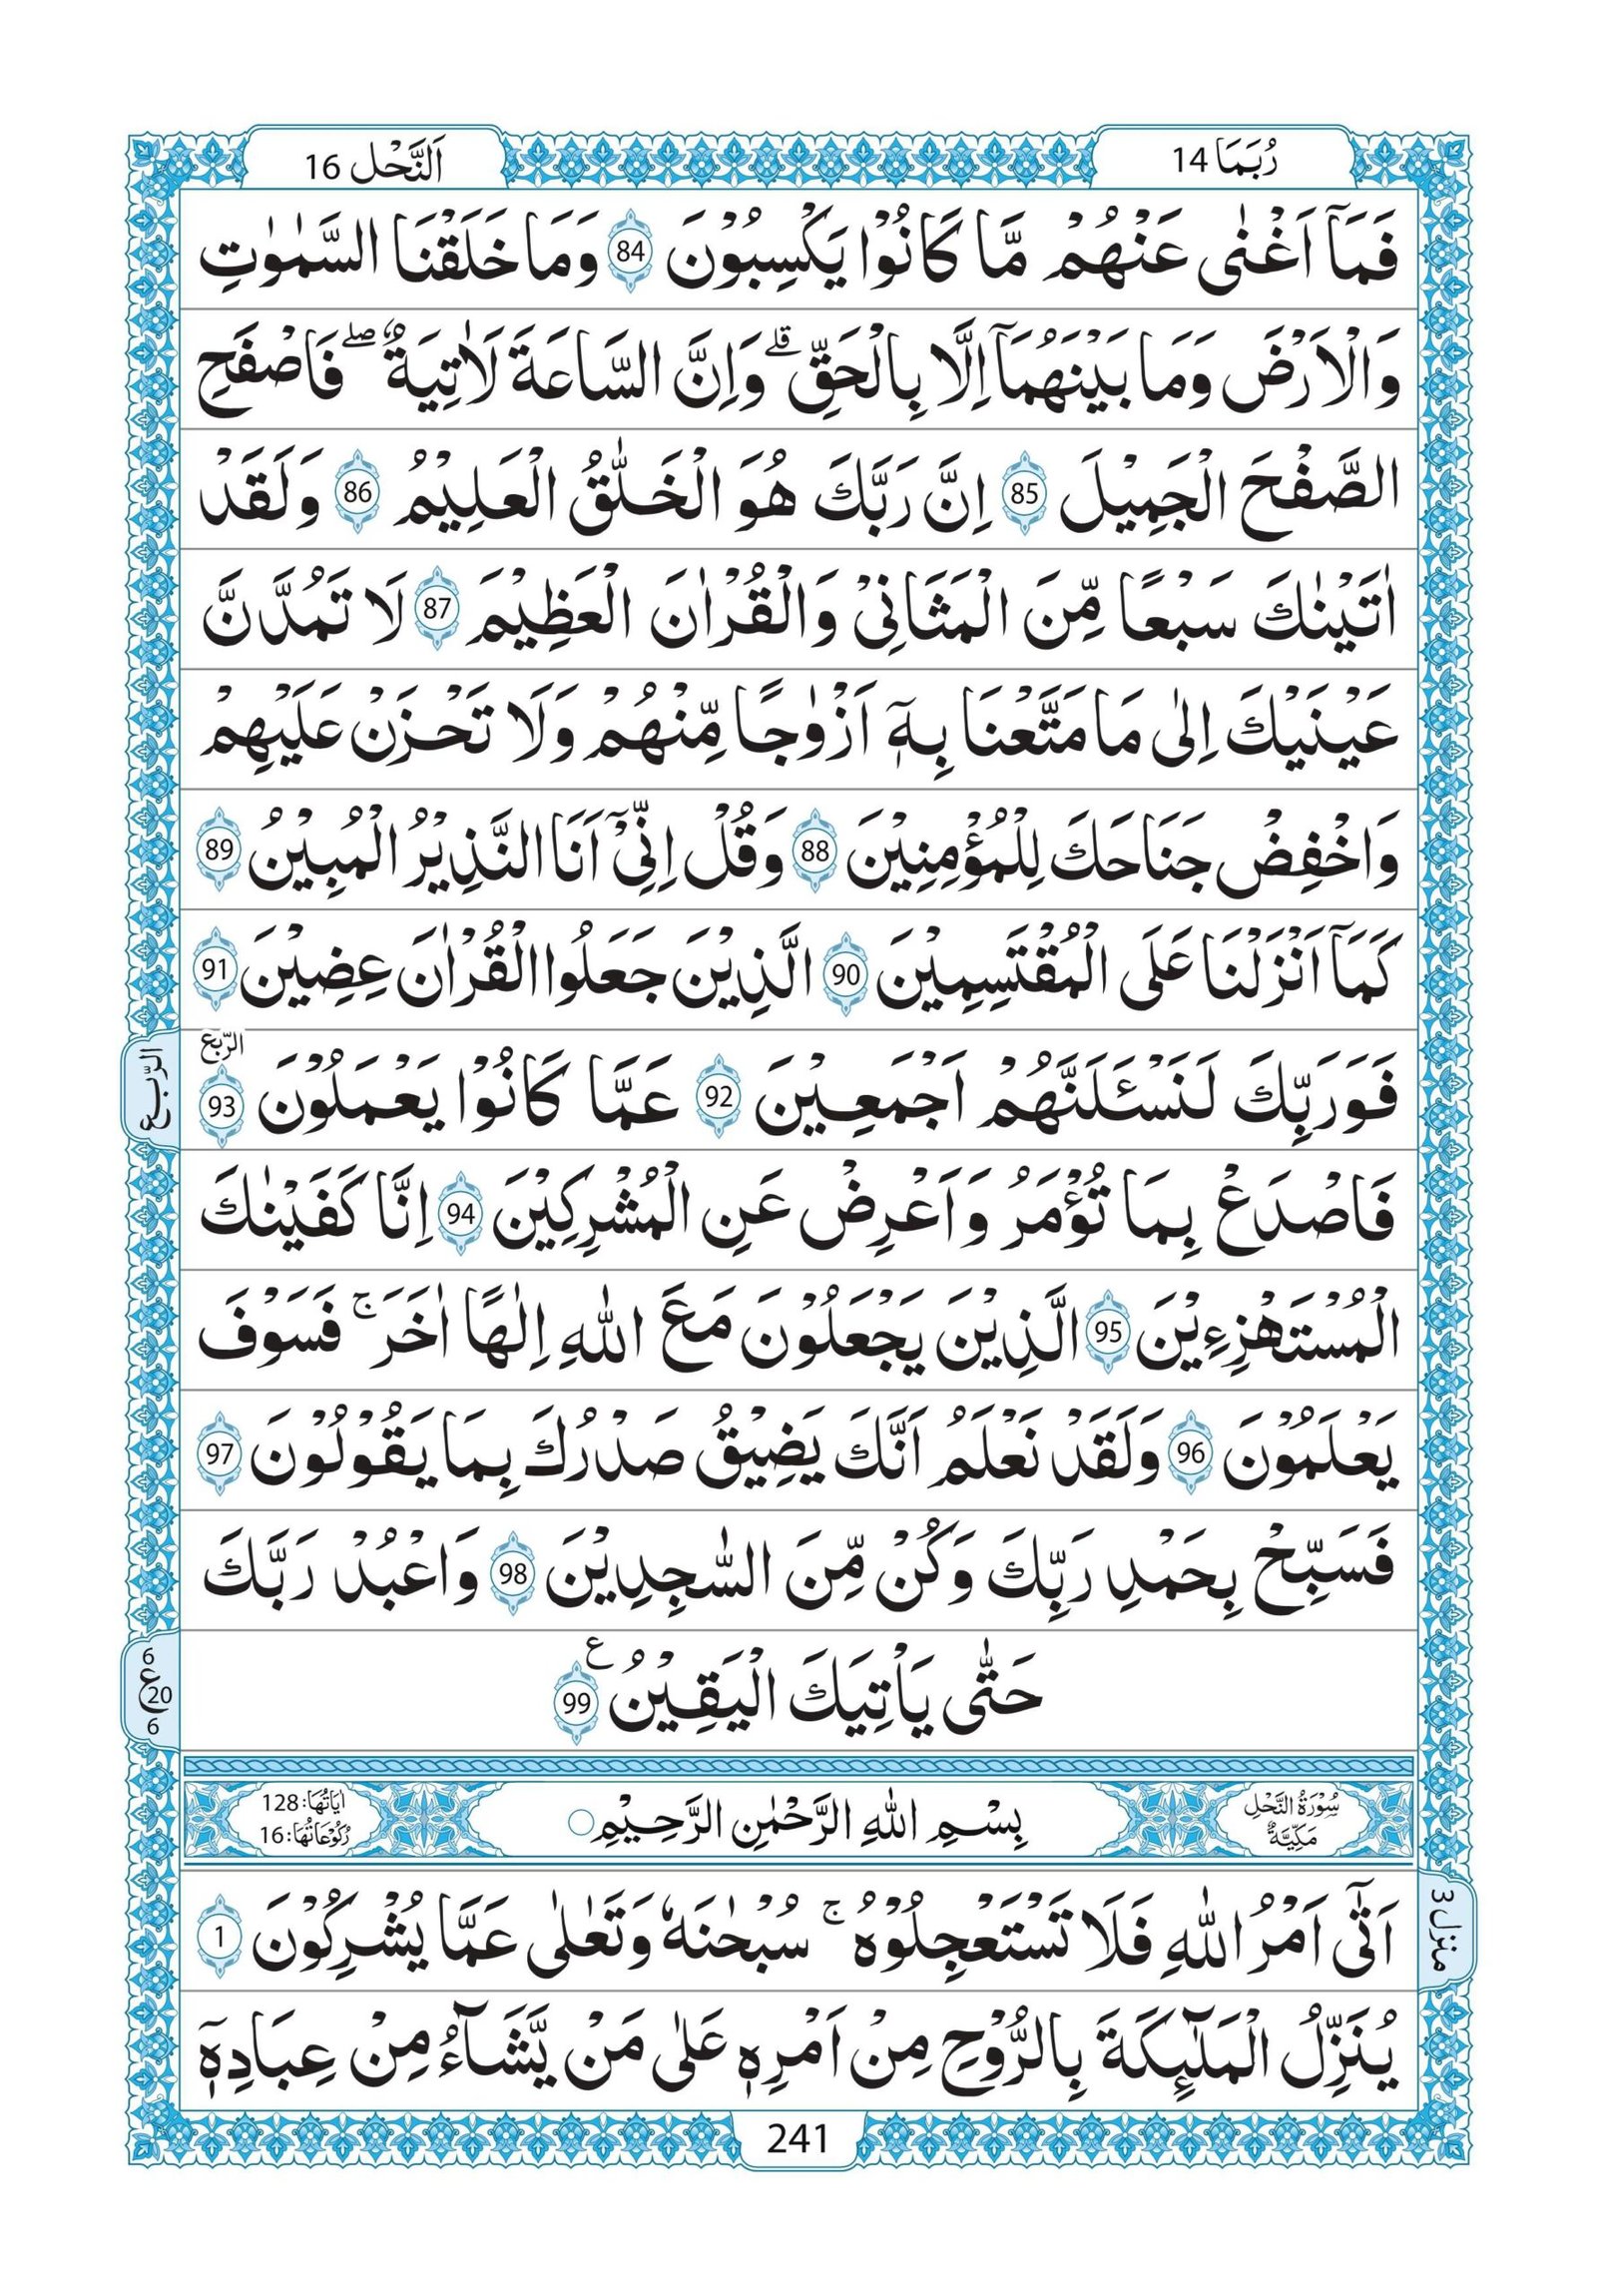 رُبَمَا 14
اَلنَّحْل 16
فَمَآ اَغْنٰى عَنْهُمْ مَّا كَانُوْا يَكْسِبُوْنَ 84 وَمَا خَلَقْنَا السَّمٰوٰتِ
وَالْاَرْضَ وَمَا بَيْنَهُمَآ اِلَّا بِالْحَقِّ ۗ وَاِنَّ السَّاعَةَ لَاٰتِيَةٌ ۖ فَاصْفَحِ
الصَّفْحَ الْجَمِيْلَ 85 اِنَّ رَبَّكَ هُوَ الْخَلّٰقُ الْعَلِيْمُ 86 وَلَقَدْ
اٰتَيْنٰكَ سَبْعًا مِّنَ الْمَثَانِيْ وَالْقُرْاٰنَ الْعَظِيْمَ 87 لَا تَمُدَّنَّ
عَيْنَيْكَ اِلٰى مَا مَتَّعْنَا بِهٖٓ اَزْوٰجًا مِّنْهُمْ وَلَا تَحْزَنْ عَلَيْهِمْ
وَاخْفِضْ جَنَاحَكَ لِلْمُؤْمِنِيْنَ 88 وَقُلْ اِنِّيْٓ اَنَا النَّذِيْرُ الْمُبِيْنُ 89
كَمَآ اَنْزَلْنَا عَلَى الْمُقْتَسِمِيْنَ 90 الَّذِيْنَ جَعَلُوا الْقُرْاٰنَ عِضِيْنَ 91
فَوَرَبِّكَ لَنَسْـَٔلَنَّهُمْ اَجْمَعِيْنَ 92 عَمَّا كَانُوْا يَعْمَلُوْنَ 93 الرّبع
الرّبع
فَاصْدَعْ بِمَا تُؤْمَرُ وَاَعْرِضْ عَنِ الْمُشْرِكِيْنَ 94 اِنَّا كَفَيْنٰكَ
الْمُسْتَهْزِءِيْنَ 95 الَّذِيْنَ يَجْعَلُوْنَ مَعَ اللّٰهِ اِلٰهًا اٰخَرَ ۚ فَسَوْفَ
يَعْلَمُوْنَ 96 وَلَقَدْ نَعْلَمُ اَنَّكَ يَضِيْقُ صَدْرُكَ بِمَا يَقُوْلُوْنَ 97
فَسَبِّحْ بِحَمْدِ رَبِّكَ وَكُنْ مِّنَ السّٰجِدِيْنَ 98 وَاعْبُدْ رَبَّكَ
حَتّٰى يَاْتِيَكَ الْيَقِيْنُ ع 99
6
ع 20
6
سُوْرَةُ النَّحْلِ
مَكِّيَّةٌ
بِسْمِ اللّٰهِ الرَّحْمٰنِ الرَّحِيْمِ ○
اٰيَاتُهَا: 128
رُكُوْعَاتُهَا: 16
اَتٰٓى اَمْرُ اللّٰهِ فَلَا تَسْتَعْجِلُوْهُ ۚ سُبْحٰنَهٗ وَتَعٰلٰى عَمَّا يُشْرِكُوْنَ 1
منزل 3
يُنَزِّلُ الْمَلٰٓئِكَةَ بِالرُّوْحِ مِنْ اَمْرِهٖ عَلٰى مَنْ يَّشَآءُ مِنْ عِبَادِهٖٓ
241